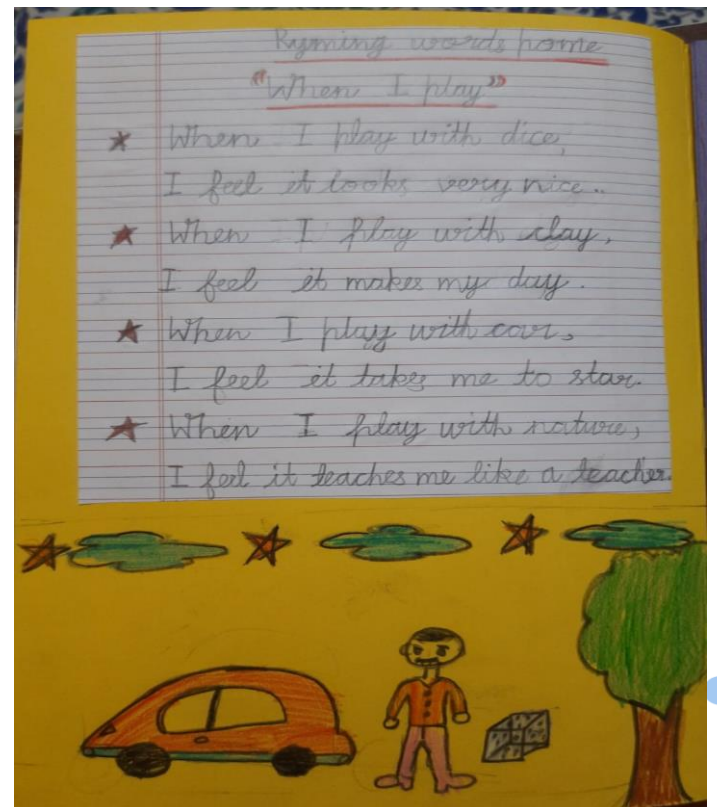 Ryming words pome
"When I play"
When I play with dice,
I feel it looks very nice..
When I play with clay,
I feel it makes my day.
When I play with car,
I feel it takes me to star.
When I play with nature,
I feel it teaches me like a teacher.